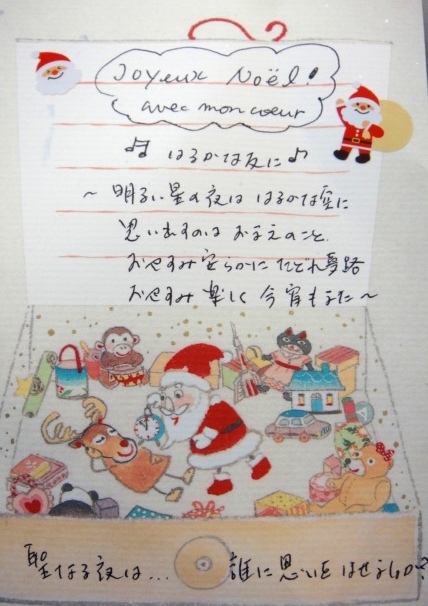 Joyeux Noël!
avec mon coeur
はるかな友に
〜 明るい星の夜は はるかな空に
思い出すのは おまえのこと
おやすみ安らかに たどれ夢路
おやすみ 楽しく 今宵もまた 〜
聖なる夜は... 誰に思いをはせようか?